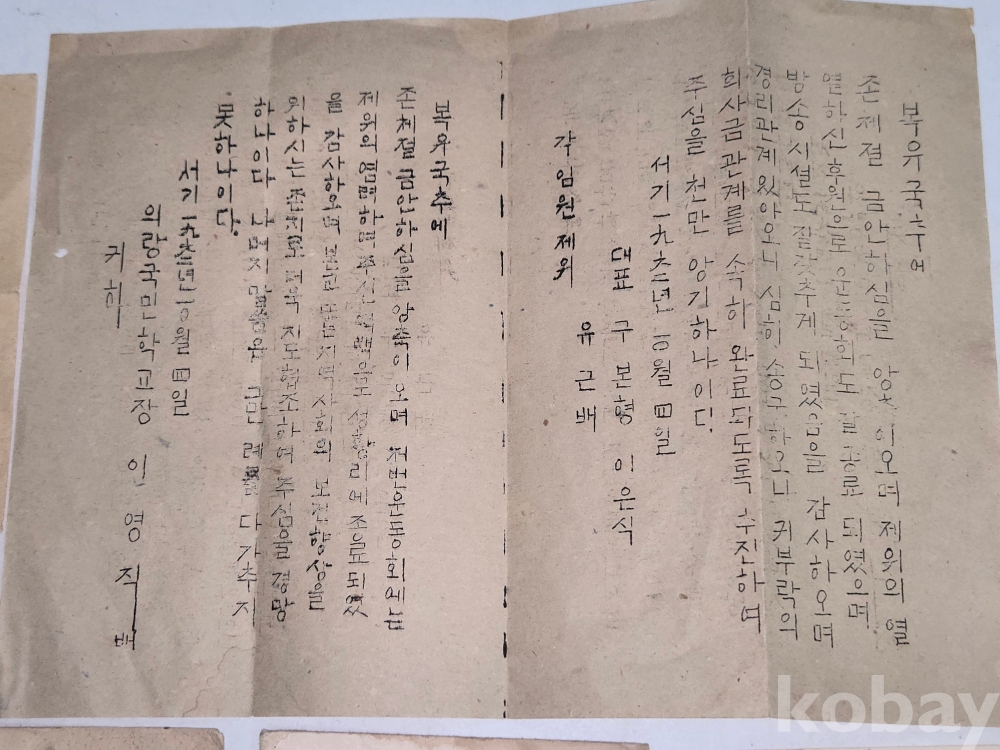 복유국추에
존체절 금안하심을 앙축이오며 제위의 열
열하신 후원으로 운동회도 잘 종료 되였으며
방송시설도 잘갖추게 되였음을 감사하오며
경리관계 있아오니 심히 송구하오나 귀부락의
희사금관계를 속히 완료되도록 추진하며
주심을 천만 앙기하나이다.
서기 一九 년 一0월 四일
대표 구본형 이은식
유근배
각임원제위
복유국추에
존체절 금안하심을 앙축이오며 저번운동회에는
제위의 염려하며 주신 으로 성황리에 종료되였
을 감사하오며 본교 또는 지역사회의 발전향상을
위하시는 로 더욱 지도협조하여 주심을 경망
하나이다 나머지 말씀은 례를 다가추지
못하나이다.
서기 一九 년 一0월 四일
의랑국민학교장 인영직 배
귀하
kobay